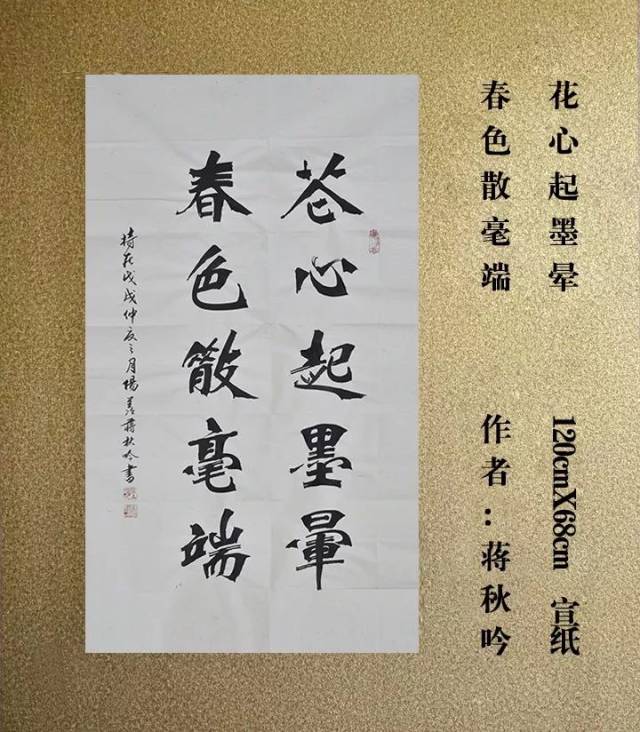 花心起墨晕
120cmX68cm 宣纸
春色散毫端
作者：蒋秋吟
花心起墨暈
春色散毫端
時在戊戌仲夏之月陽羡蔣秋吟書